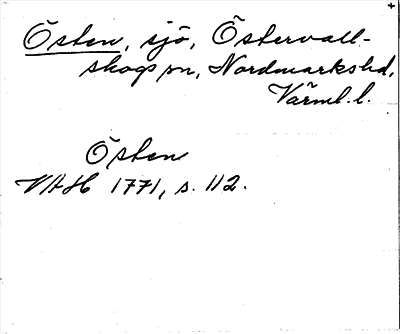 Östen, sjö, Östervall-
skogs sn, Nordmarks hd,
Värml. l.
Östen
VAH 1771, s. 112.